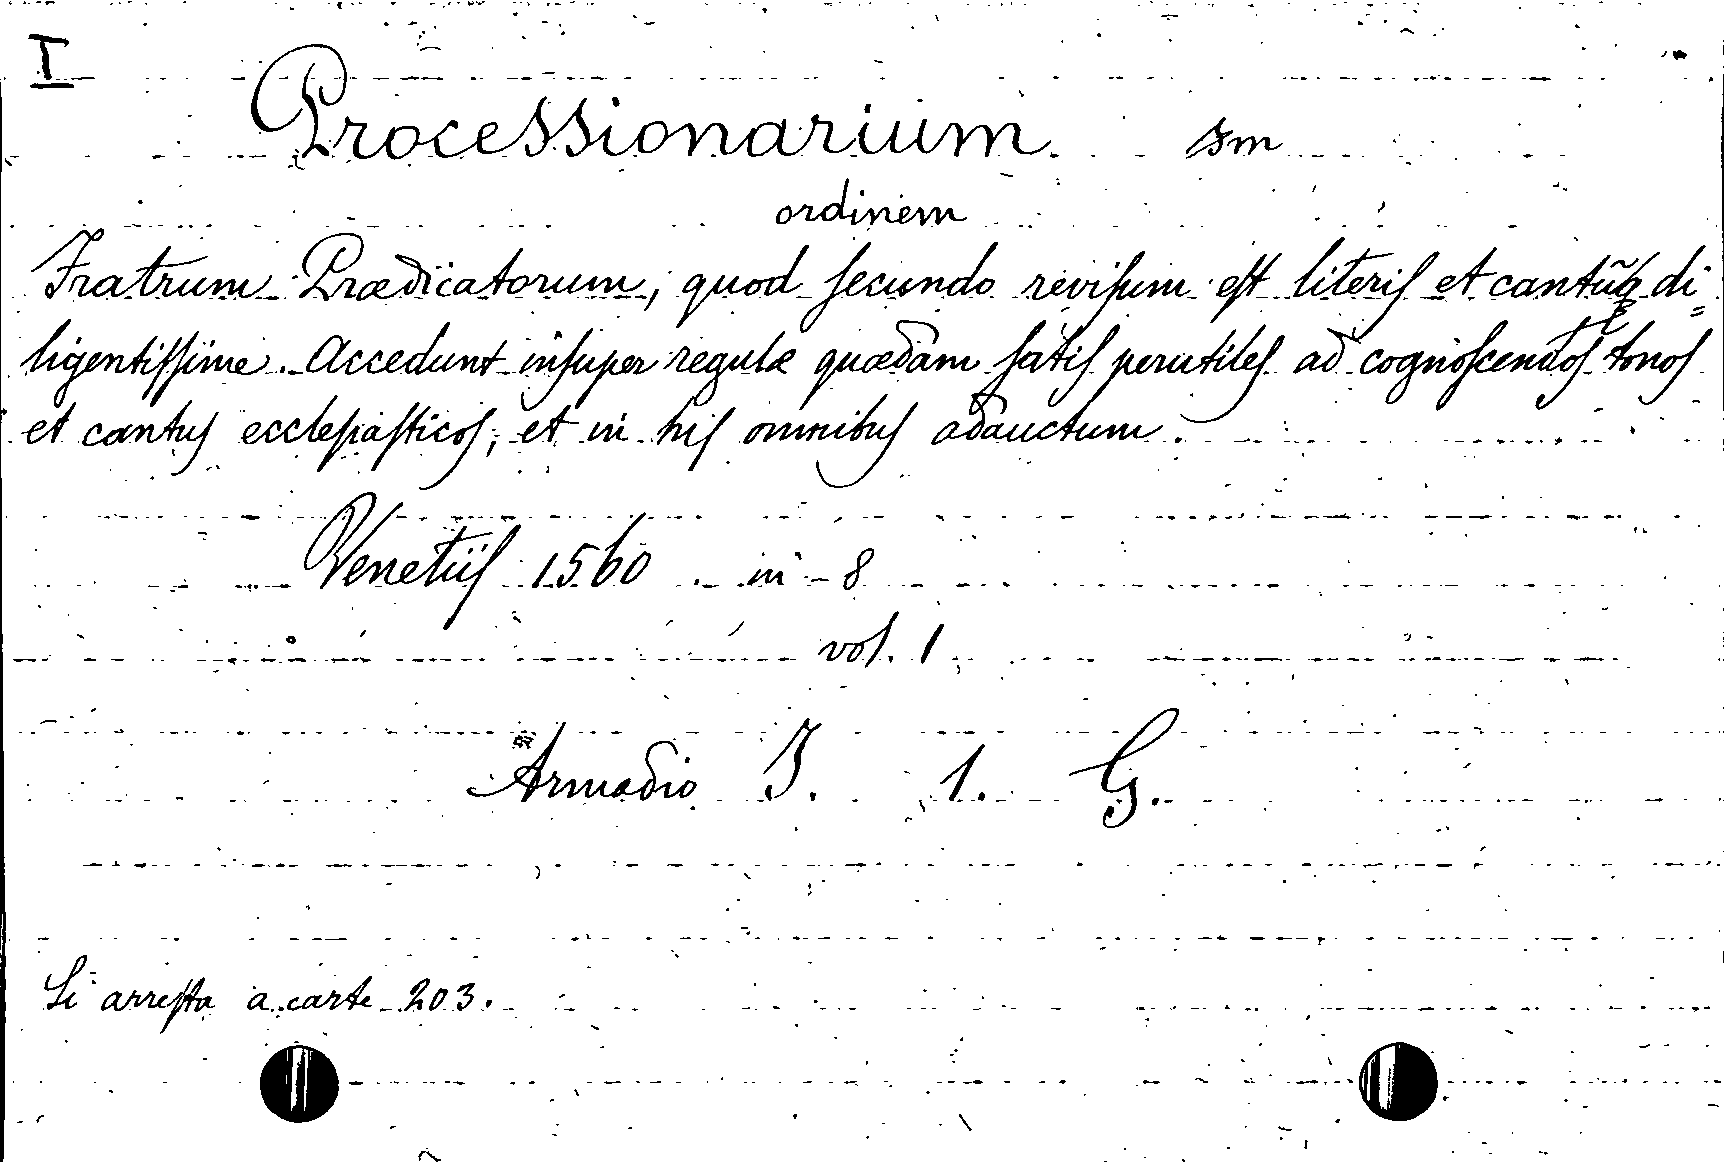 I
Processionarium sm
ordinem
Fratrum Prædicatorum, quod ſecundo reviſum eſt literiſ et cantũqꝫ di=
ligentiſſime. Accedunt inſuper regulæ quædam ſatiſ perutileſ ad cognoſcendoſ tonoſ
et cantuſ eccleſiaſticoſ; et in hiſ omnibuſ adauctum.
Venetiiſ 1560. in-8
vol. 1
Armadio I. 1. G.
Si arreſta a carte 203.